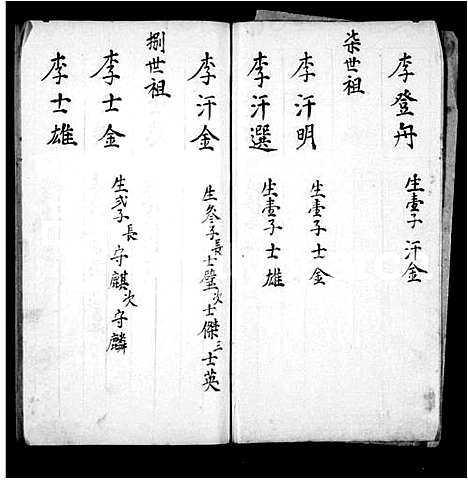 李登舟 生壹子 汗金
柒世祖
李汗明 生壹子士金
李汗選 生壹子士雄
李汗金 生叁子長士璧次士傑三士英
捌世祖
李士金 生弍子長守麒次守麟
李士雄